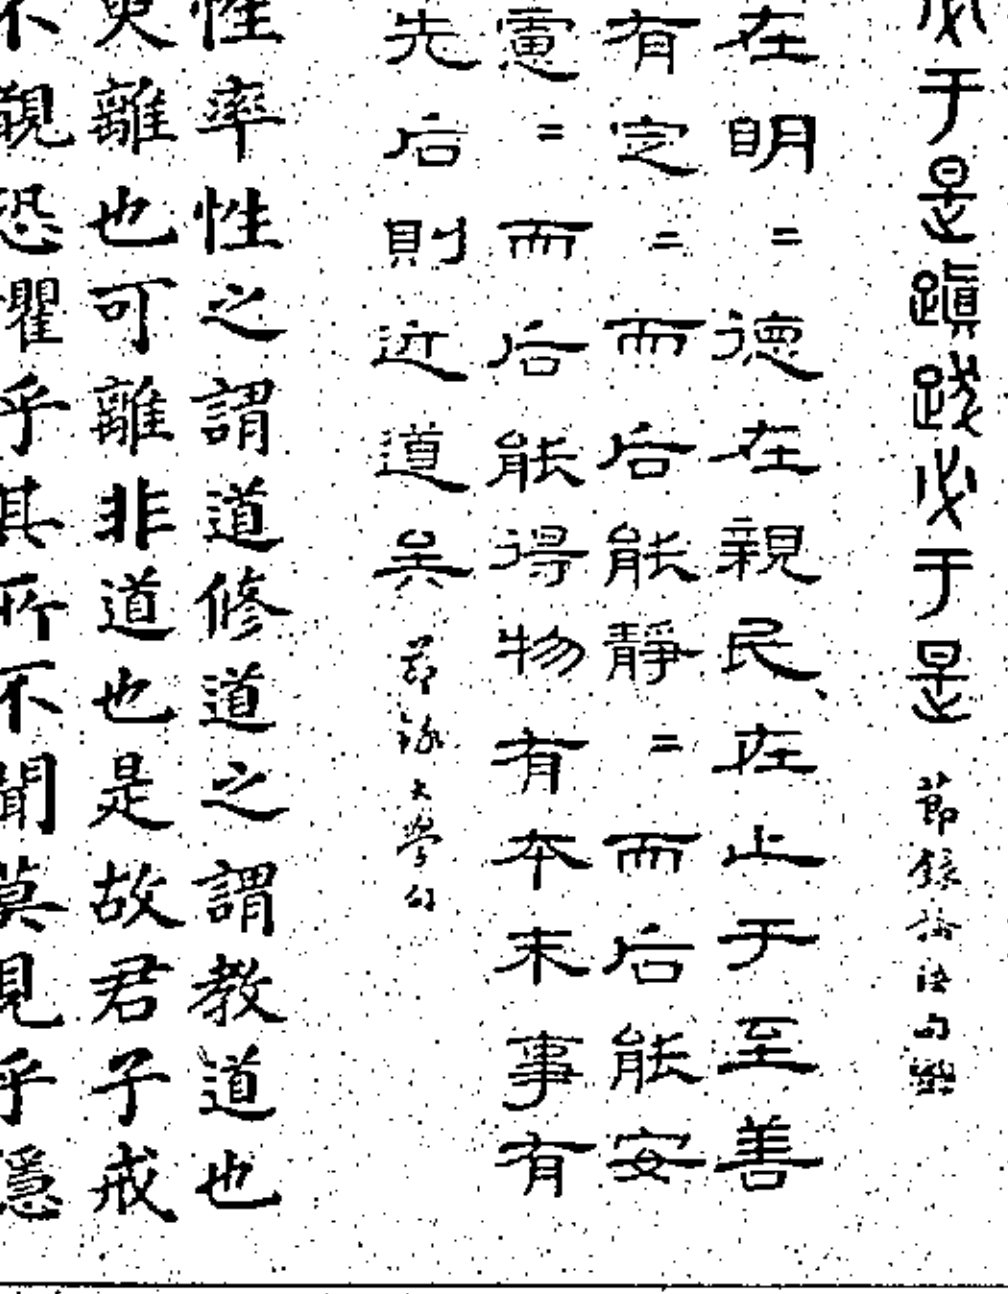 必于是顛跋必于是 節錄論語句
在明〻德在親民在止于至善
有定〻而后能靜〻而后能安
慮〻而后能得物有本末事有
先后則近道矣 節錄大學句
性率性之謂道修道之謂教道也
臾離也可離非道也是故君子戒
不覩恐懼乎其所不聞莫見乎隱